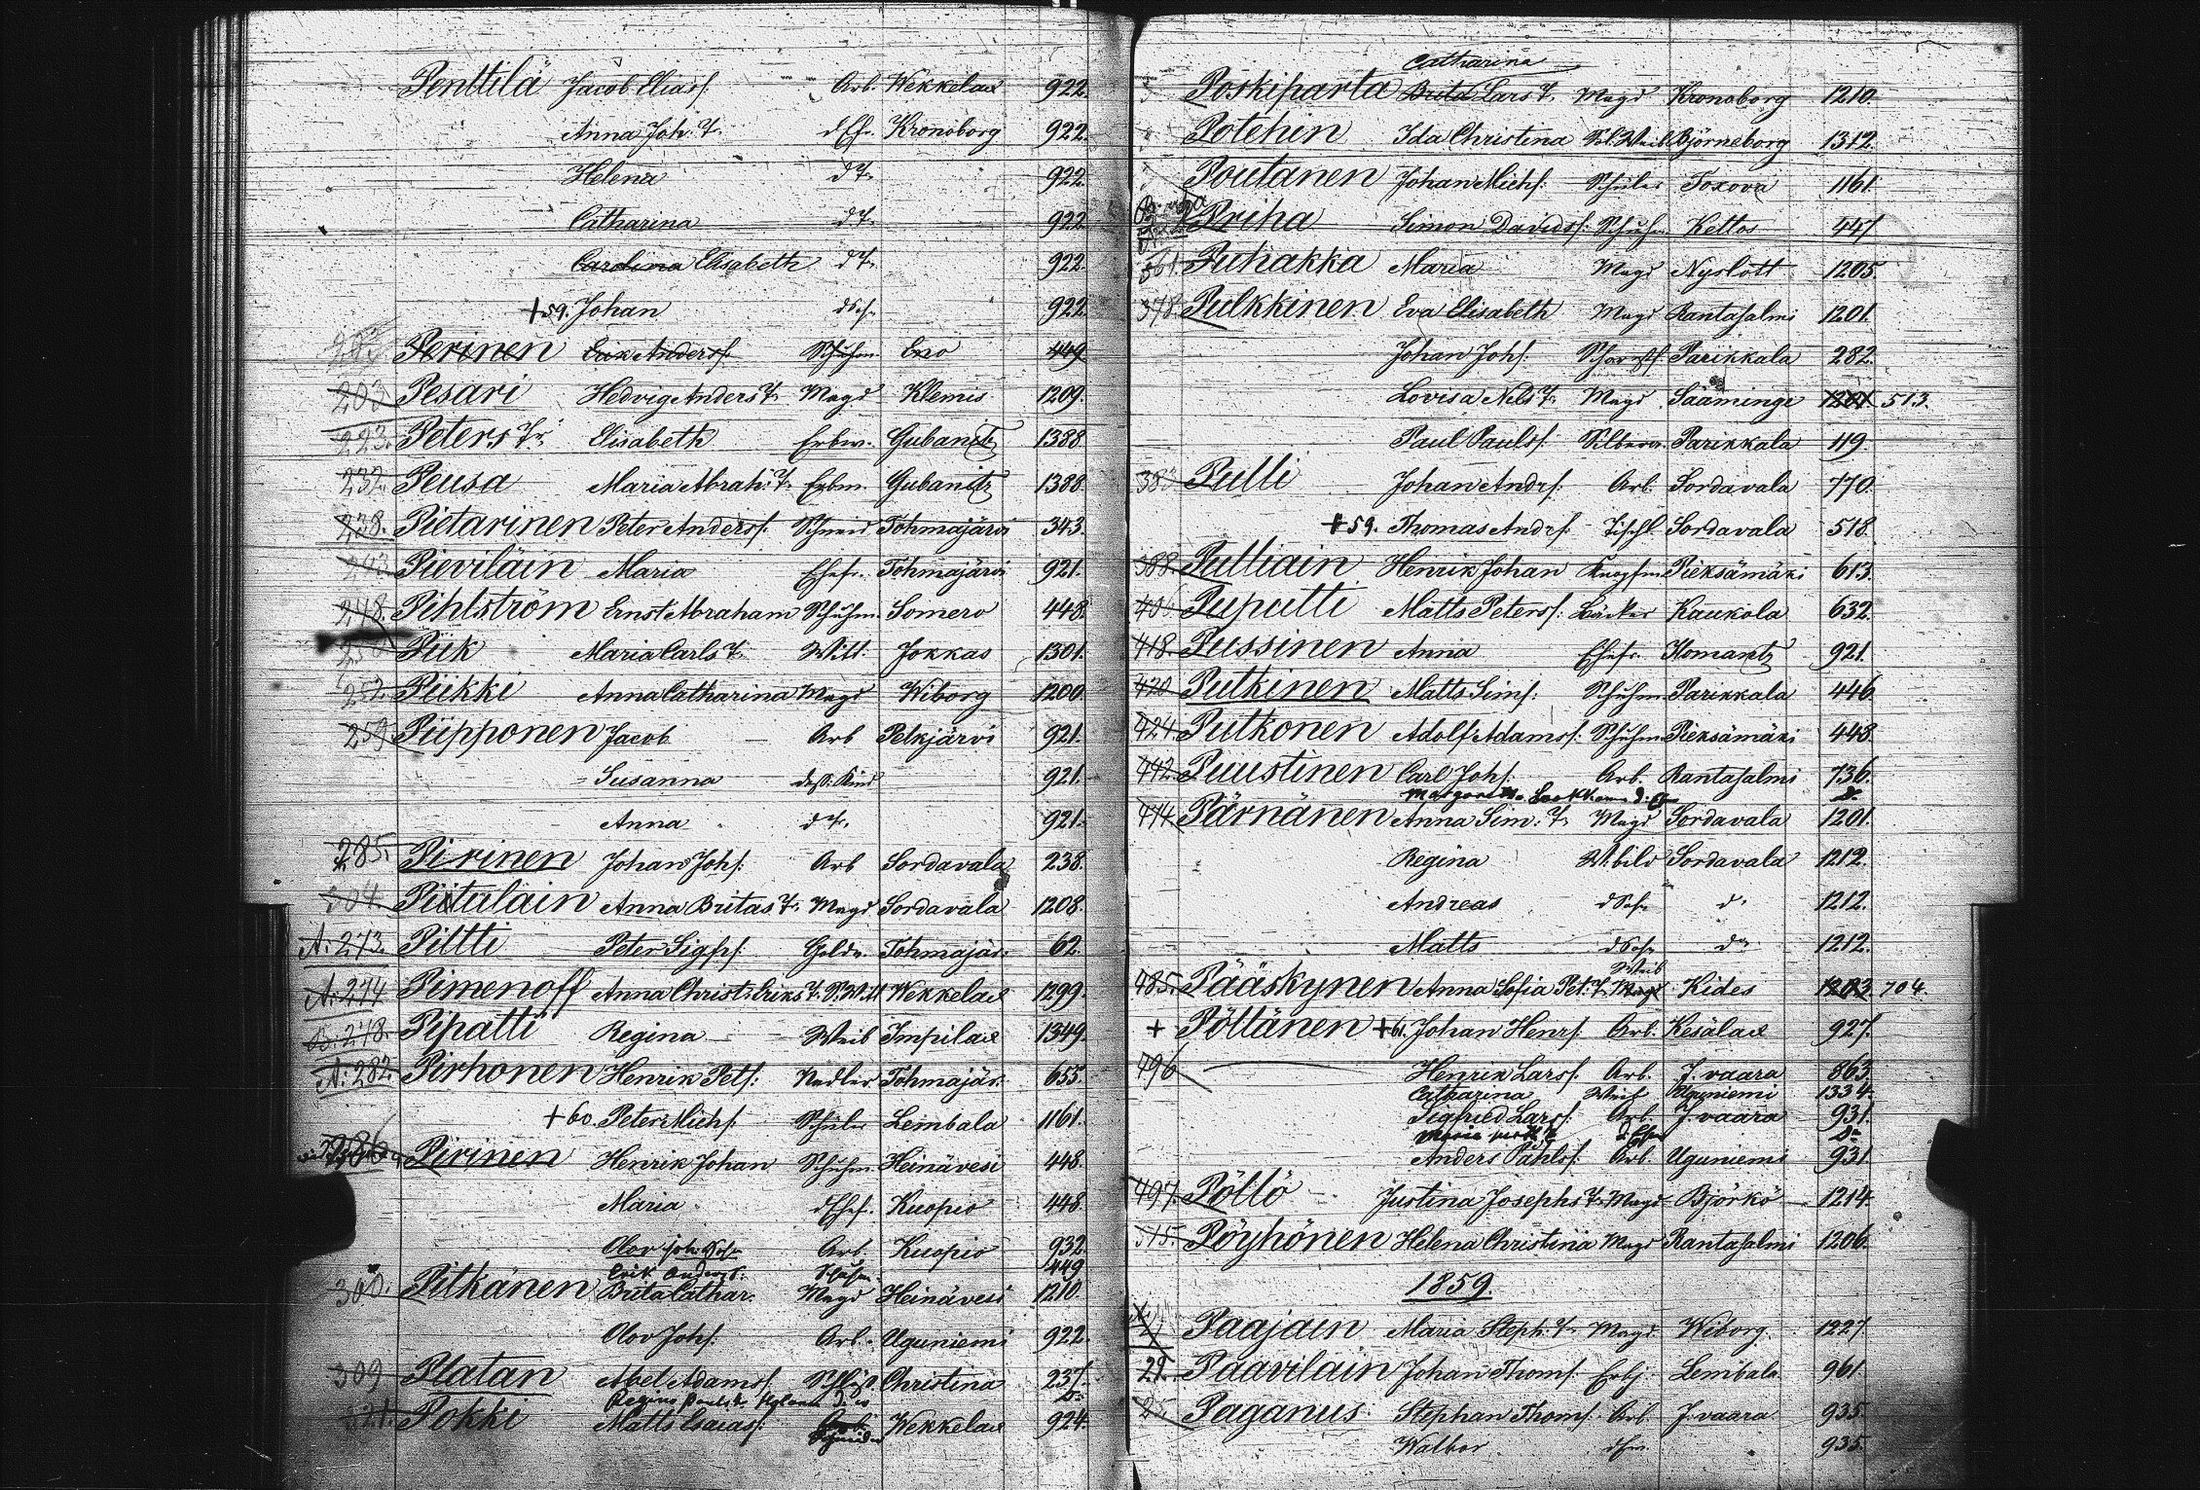 Penttilä Jacob Eliass. Arb. Wekkelax 922.
Anna Joh. T. d Ef. Kronoborg 922.
Helena d T. 922.
Catharina d T. 922
Carolina Elisabeth d T. 922.
+59. Johan d Sohn 922.
Perinen Erik Anderss. Schuhm. Eno 449
203 Pesari Hedvig Anders T. Magd Klemis 1209.
223. Peters Tr. Elisabeth Erbw. Gubanitz 1388.
232. Peusa Maria Abrah. T. Erbm. Gubanitz 1388.
238. Pietarinen Peter Anderss. Schneid. Tohmajärvi 343.
243. Pieviläin Maria Ehefr. Tohmajärvi 921.
248. Pihlström Ernst Abraham Schuhm. Somero 448.
250 Piik Maria Carls T. Witt. Jokkas 1301.
252. Piikki Anna Catharina Magd Wiborg 1200.
259. Piipponen Jacob Arb Pelkjärvi 921.
Susanna dess. Kind 921.
Anna d T. 921.
285. Pirinen Johan Johs. Arb Sordavala 238.
304. Piituläin Anna Britas T. Magd Sordavala 1208.
A: 273. Piltti Peter Sigfs. Goldn. Tohmajär. 62.
A: 274 Pimenoff Anna Christ. Eriks T. S. Witt Wekkelax 1299.
278. Pipatti Regina Weib Impilax 1349.
A: 282. Pirhonen Henrik Pets. Nadler Tohmajär. 655.
+60. Peter Michs. Schüler Lembala 1161.
286 Pirinen Henrik Johan Schuhm. Heinävesi 448.
Maria d Ehef. Kuopio 448.
Olov Joh. Sohn Arb. Kuopio 932.
Erik Anderss. Schuhm. 449
300. Pitkänen Brita Cathar. Magd Heinävesi 1210.
Olov Johs. Arb. Uguniemi 922.
309 Platan Abel Adamss. Christina 237.
321. Pokki Matts Esaiass. Arb. Schneider Wekkelax 924.
Catharina
Poskiparta Brita Lars T. Magd Kronoborg 1210.
Potehin Ida Christina Sol. Weib Björneborg 1312.
Poutanen Johan Michs. Schüler Toxova 1161.
Priha Simon Davidss. Schuhm. Keltos 447
361. Puhakka Maria Magd Nyslott 1205.
378. Pulkkinen Eva Elisabeth Magd Rantasalmi 1201.
Johan Johs. Schornstf. Parikkala 282.
Lovisa Nils T. Magd Sääminge 1201. 513.
Paul Pauls. Silberar. Parikkala 119.
383 Pulli Johan Andrs. Arb. Sordavala 770.
+59. Thomas Andrs. Tischl. Sordavala 518.
388. Pulliain Henrik Johan Knopfm Pieksämäki 613.
406 Puputti Matts Peterss. Bäcker Kaukola 632.
418. Pussinen Anna Ehefr. Ilomantz 921.
420 Putkinen Matts Sims. Schuhm. Parikkala 446.
424. Putkonen Adolf Adamss. Schuhm Pieksämäki 448.
442. Puustinen Carl Johs. Arb. Rantasalmi 736.
474. Pärnänen Anna Sim. T. Magd Sordavala 1201.
Regina W. bild Sordavala 1212.
Andreas d Sohn d. 1212.
Matts d Sohn do. 1212.
Weib
485. Pääskynen Anna Sofia Pet. T. Magd Kides 1203. 704.
+ Pöllänen +61. Johan Henrs. Arb. Kesälax 927.
496 Henrik Larss. Arb. J. vaara 863
Catharina Weib Uguniemi 1334.
Sigfried Larss. Arb. J. vaara 931.
Anders Påhlss. Arb. Uguniemi 931.
497. Pöllö Justina Josephs T. Magd Björkö 1214.
515. Pöyhönen Helena Christina Magd Rantasalmi 1206.
1859.
Paajain Maria Steph. T. Magd Wiborg. 1227.
21. Paavilain Johan Thoms. Erbj. Lembala 961.
25. Paganus Stephan Thoms. Arb. J. vaara 935.
Walbor 935.